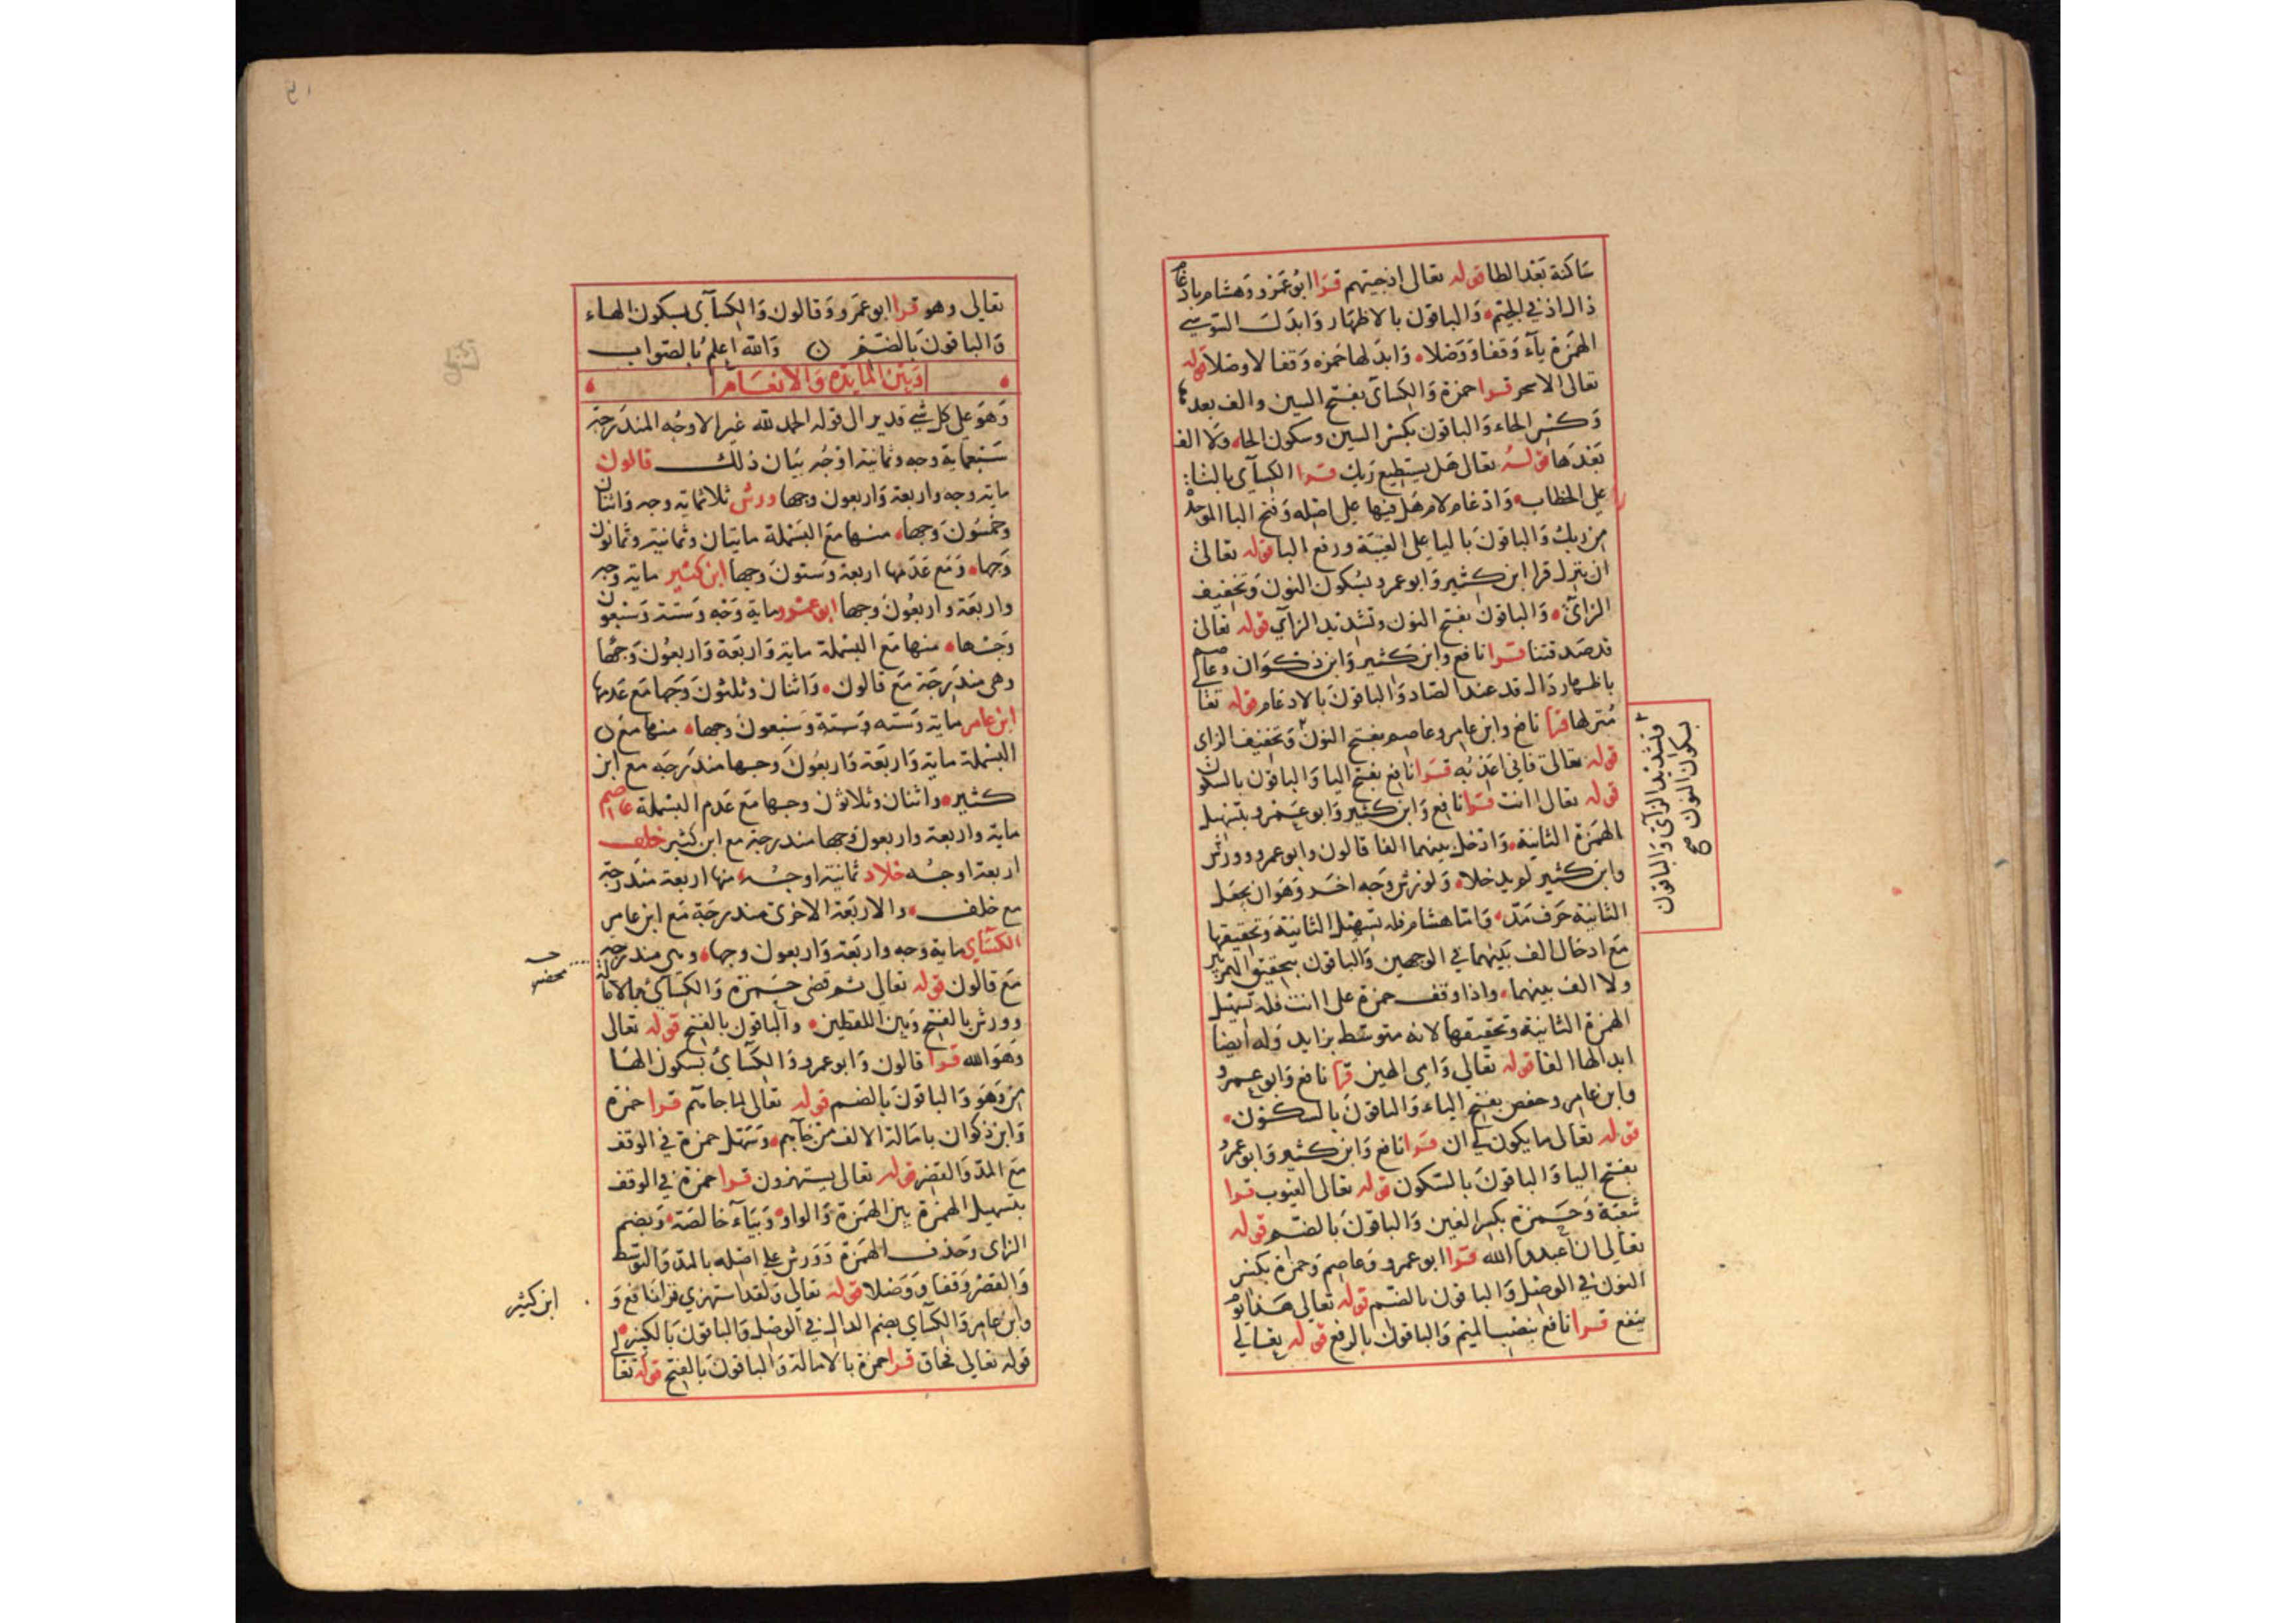 ساكنة بعد الطا قوله تعالى اذ جيتهم قرا ابو عمرو وهشام بادغام
ذال اذ في الجيم والباقون بالاظهار وابدل السوسي
الهمزة ياء وقفا ووصلا وابدلها حمزه وقفا لا وصلا قوله
تعالى الا سحر قرا حمزة والكساى بفتح السين والف بعدها
وكسر الحاء والباقون بكسر السين وسكون الحاء ولا الف
بعدها قوله تعالى هل يستطيع ربك قرا الكساى بالتا
على الخطاب وادغام لام هل فيها على اصله وفتح البا الموحدة
من ربك والباقون باليا على الغيبة ورفع البا قوله تعالى
ان ينزل قرا ابن كثير وابو عمرو بسكون النون وتخفيف
الزاى والباقون بفتح النون وتشديد الزاي قوله تعالى
قد صدقتنا قرا نافع وابن كثير وابن ذكوان وعاصم
باظهار دال قد عند الصاد والباقون بالادغام قوله تعالى
منزلها قرا نافع وابن عامر وعاصم بفتح النون وتخفيف الزاى
قوله تعالى فاني اعذبه قرا نافع بفتح اليا والباقون بالسكون
قوله تعالى اانت قرا نافع وابن كثير وابو عمرو بتسهيل
الهمزة الثانية وادخل بينهما الفا قالون وابو عمرو وورش
وابن كثير لم يدخلا ولورش وجه اخر وهو ان يجعل
الثانية حرف مد واما هشام فله تسهيل الثانية وتحقيقها
مع ادخال الف بينهما في الوجهين والباقون بتحقيق الهمزتين
ولا الف بينهما واذا وقف حمزة على اانت فله تسهيل
الهمزة الثانية وتحقيقها لانه متوسط بزايد وله ايضا
ابدالها الفا قوله تعالى وامى الهين قرا نافع وابو عمرو
وابن عامر وحفص بفتح الياء والباقون بالسكون
قوله تعالى ما يكون لي ان قرا نافع وابن كثير وابو عمرو
بفتح اليا والباقون بالسكون قوله تعالى الغيوب قرا
شعبة وحمزة بكسر الغين والباقون بالضم قوله
تعالى ان اعبدوا الله قرا ابو عمرو وعاصم وحمزة بكسر
النون في الوصل والباقون بالضم قوله تعالى هذا يوم
ينفع قرا نافع بنصب الميم والباقون بالرفع قوله تعالى
وتشديد الزاى والباقون
بسكون النون صح
تعالى وهو قرا ابو عمرو وقالون والكساى بسكون الهاء
والباقون بالضم والله اعلم بالصواب
وبين المايده والانعام
وهو على كل شي قدير الى قوله الحمد لله غير الاوجه المندرجة
سبعماية وجه وثمانية اوجه بيان ذلك قالون
ماية وجه واربعة واربعون وجها ورش ثلاثماية وجه واثنان
وخمسون وجها منها مع البسملة مايتان وثمانية وثمانون
وجها ومع عدمها اربعة وستون وجها ابن كثير ماية وجه
واربعة واربعون وجها ابو عمرو ماية وجه وستة وسبعون
وجها منها مع البسملة ماية واربعة واربعون وجها
وهى مندرجة مع قالون واثنان وثلثون وجها مع عدمها
ابن عامر ماية وستة وسبعون وجها منها مع
البسملة ماية واربعة واربعون وجها مندرجة مع ابن
كثير واثنان وثلاثون وجها مع عدم البسملة عاصم
ماية واربعة واربعون وجها مندرجة مع ابن كثير خلف
اربعة اوجه خلاد ثمانية اوجه منها اربعة مندرجة
مع خلف والاربعة الاخرى مندرجة مع ابن عامر
الكساي ماية وجه واربعة واربعون وجها وهى مندرجة
مع قالون قوله تعالى ثم قضى حمزة والكساى بالامالة
وورش بالفتح وبين اللفظين والباقون بالفتح قوله تعالى
وهو الله قرا قالون وابو عمرو والكساى بسكون الها
من وهو والباقون بالضم قوله تعالى لما جاهم قرا حمزة
وابن ذكوان بامالة الالف من جاهم وسهل حمزة في الوقف
مع المد والقصر قوله تعالى يستهزون قرا حمزة في الوقف
بتسهيل الهمزة بين الهمزة والواو وبياء خالصة وبضم
الزاى وحذف الهمزة وورش على اصله بالمد والتوسط
والقصر وقفا ووصلا قوله تعالى ولقد استهزي قرا نافع و
وابن عامر والكساي بضم الدال في الوصل والباقون بالكسر
قوله تعالى فحاق قرا حمزة بالامالة والباقون بالفتح قوله تعالى
ابن كثير